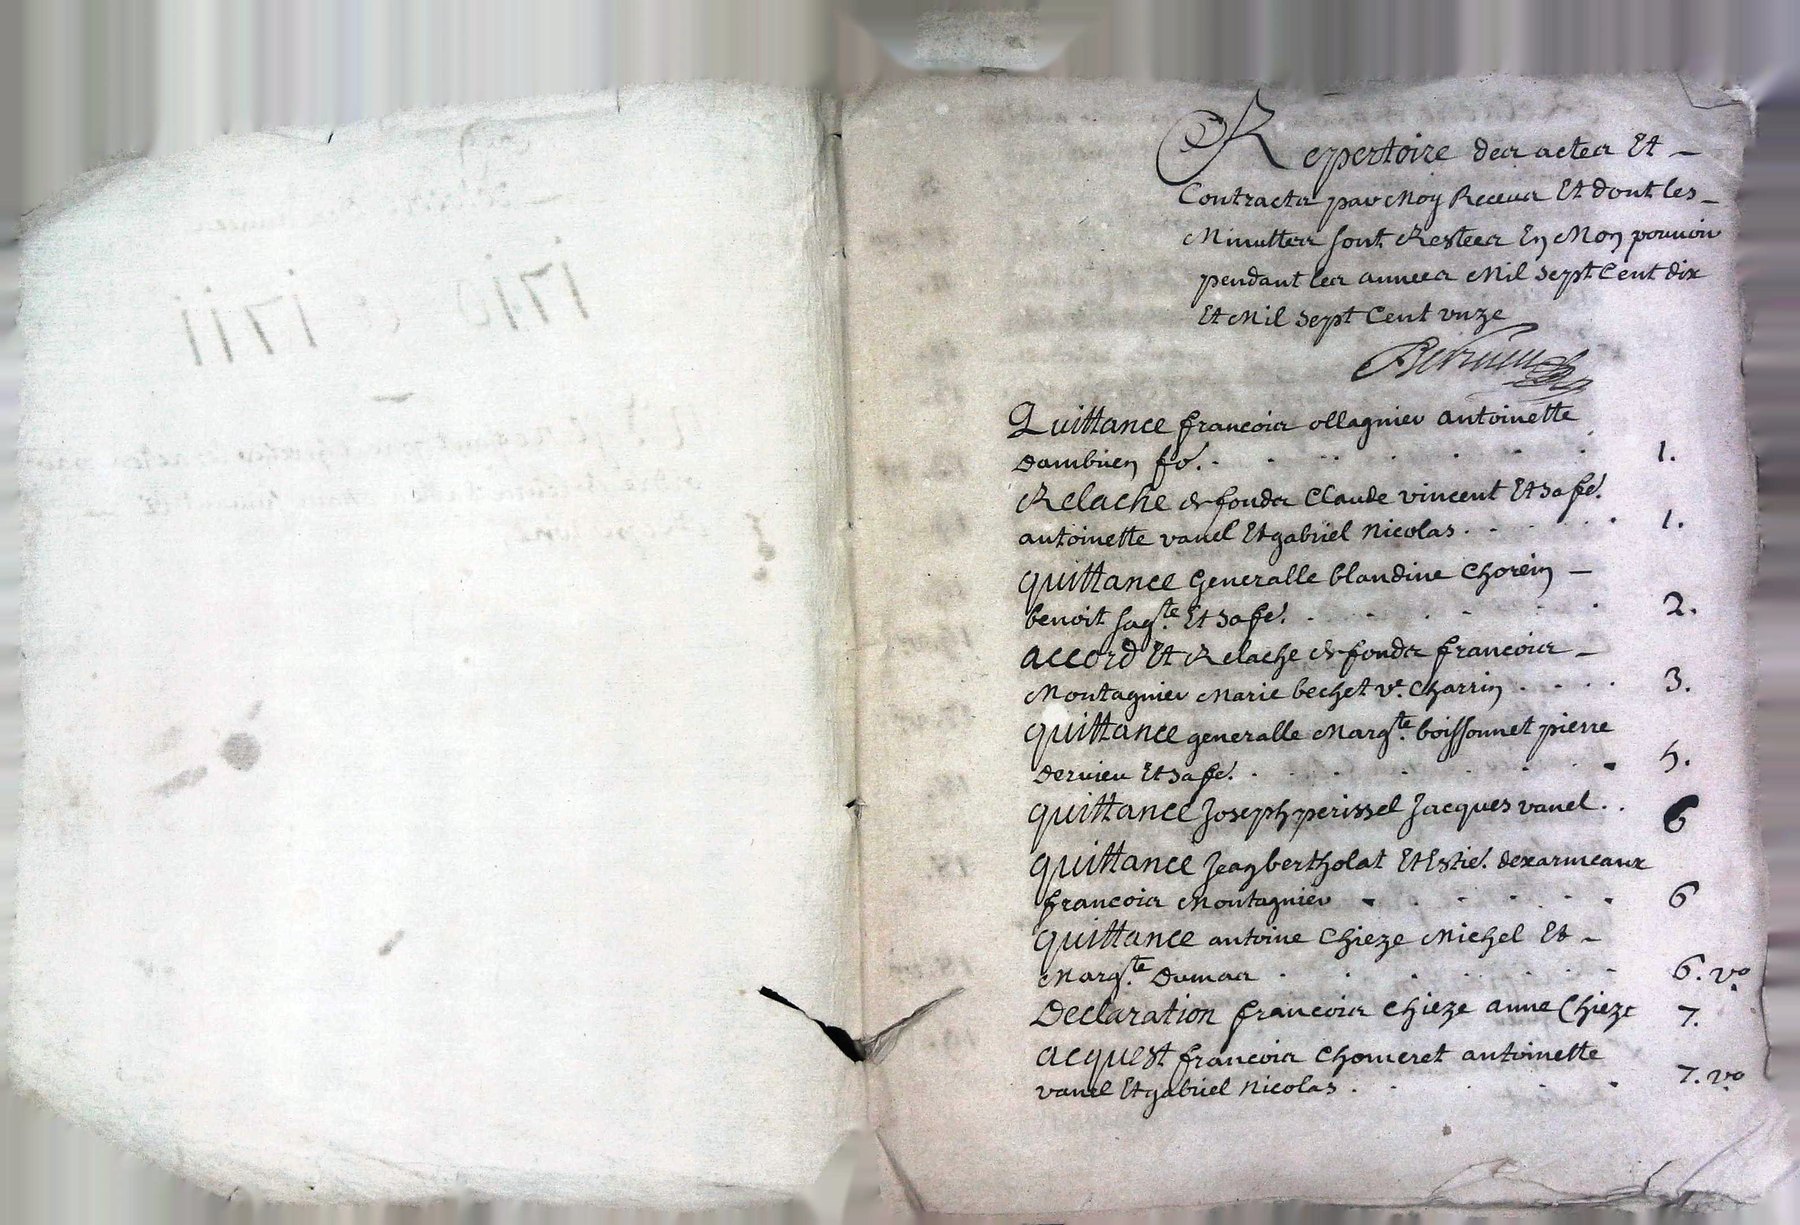 Repertoire des actes Et
Contracts par Moy Receus Et dont les
Minuttes sont Restees En Mon pouvoir
pendant les annees Mil sept Cent dix
Et Mil sept Cent unze
Quittance francois ollagnier antoinette
dambuen fe. 1.
Relache de fonds Claude vincent Et sa fe.
antoinette vanel Et gabriel Nicolas. 1.
quittance Generalle blandine Chorein
benoit Et sa fe. 2.
accord Et Relache de fonds francois
Montagnier Marie bechet ve. Charrin 3.
quittance generalle Margte. boissonnet pierre
dervieu Et sa fe. 5.
quittance Joseph perissel Jacques vanel. 6
quittance Jean bertholat Et Estie. dexarmeaux
francois Montagnier 6
quittance antoine Chieze Michel Et
Margte. Dumas 6. vo
Declaration francois Chieze anne Chieze 7.
acquest francois Chomeret antoinette
vanel Et gabriel Nicolas. 7. vo
1710 et 1711